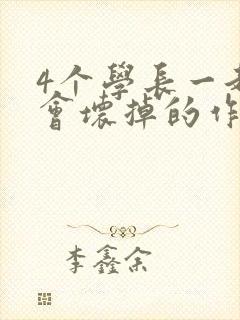 4个學長一
會壞掉的作
李鑫余